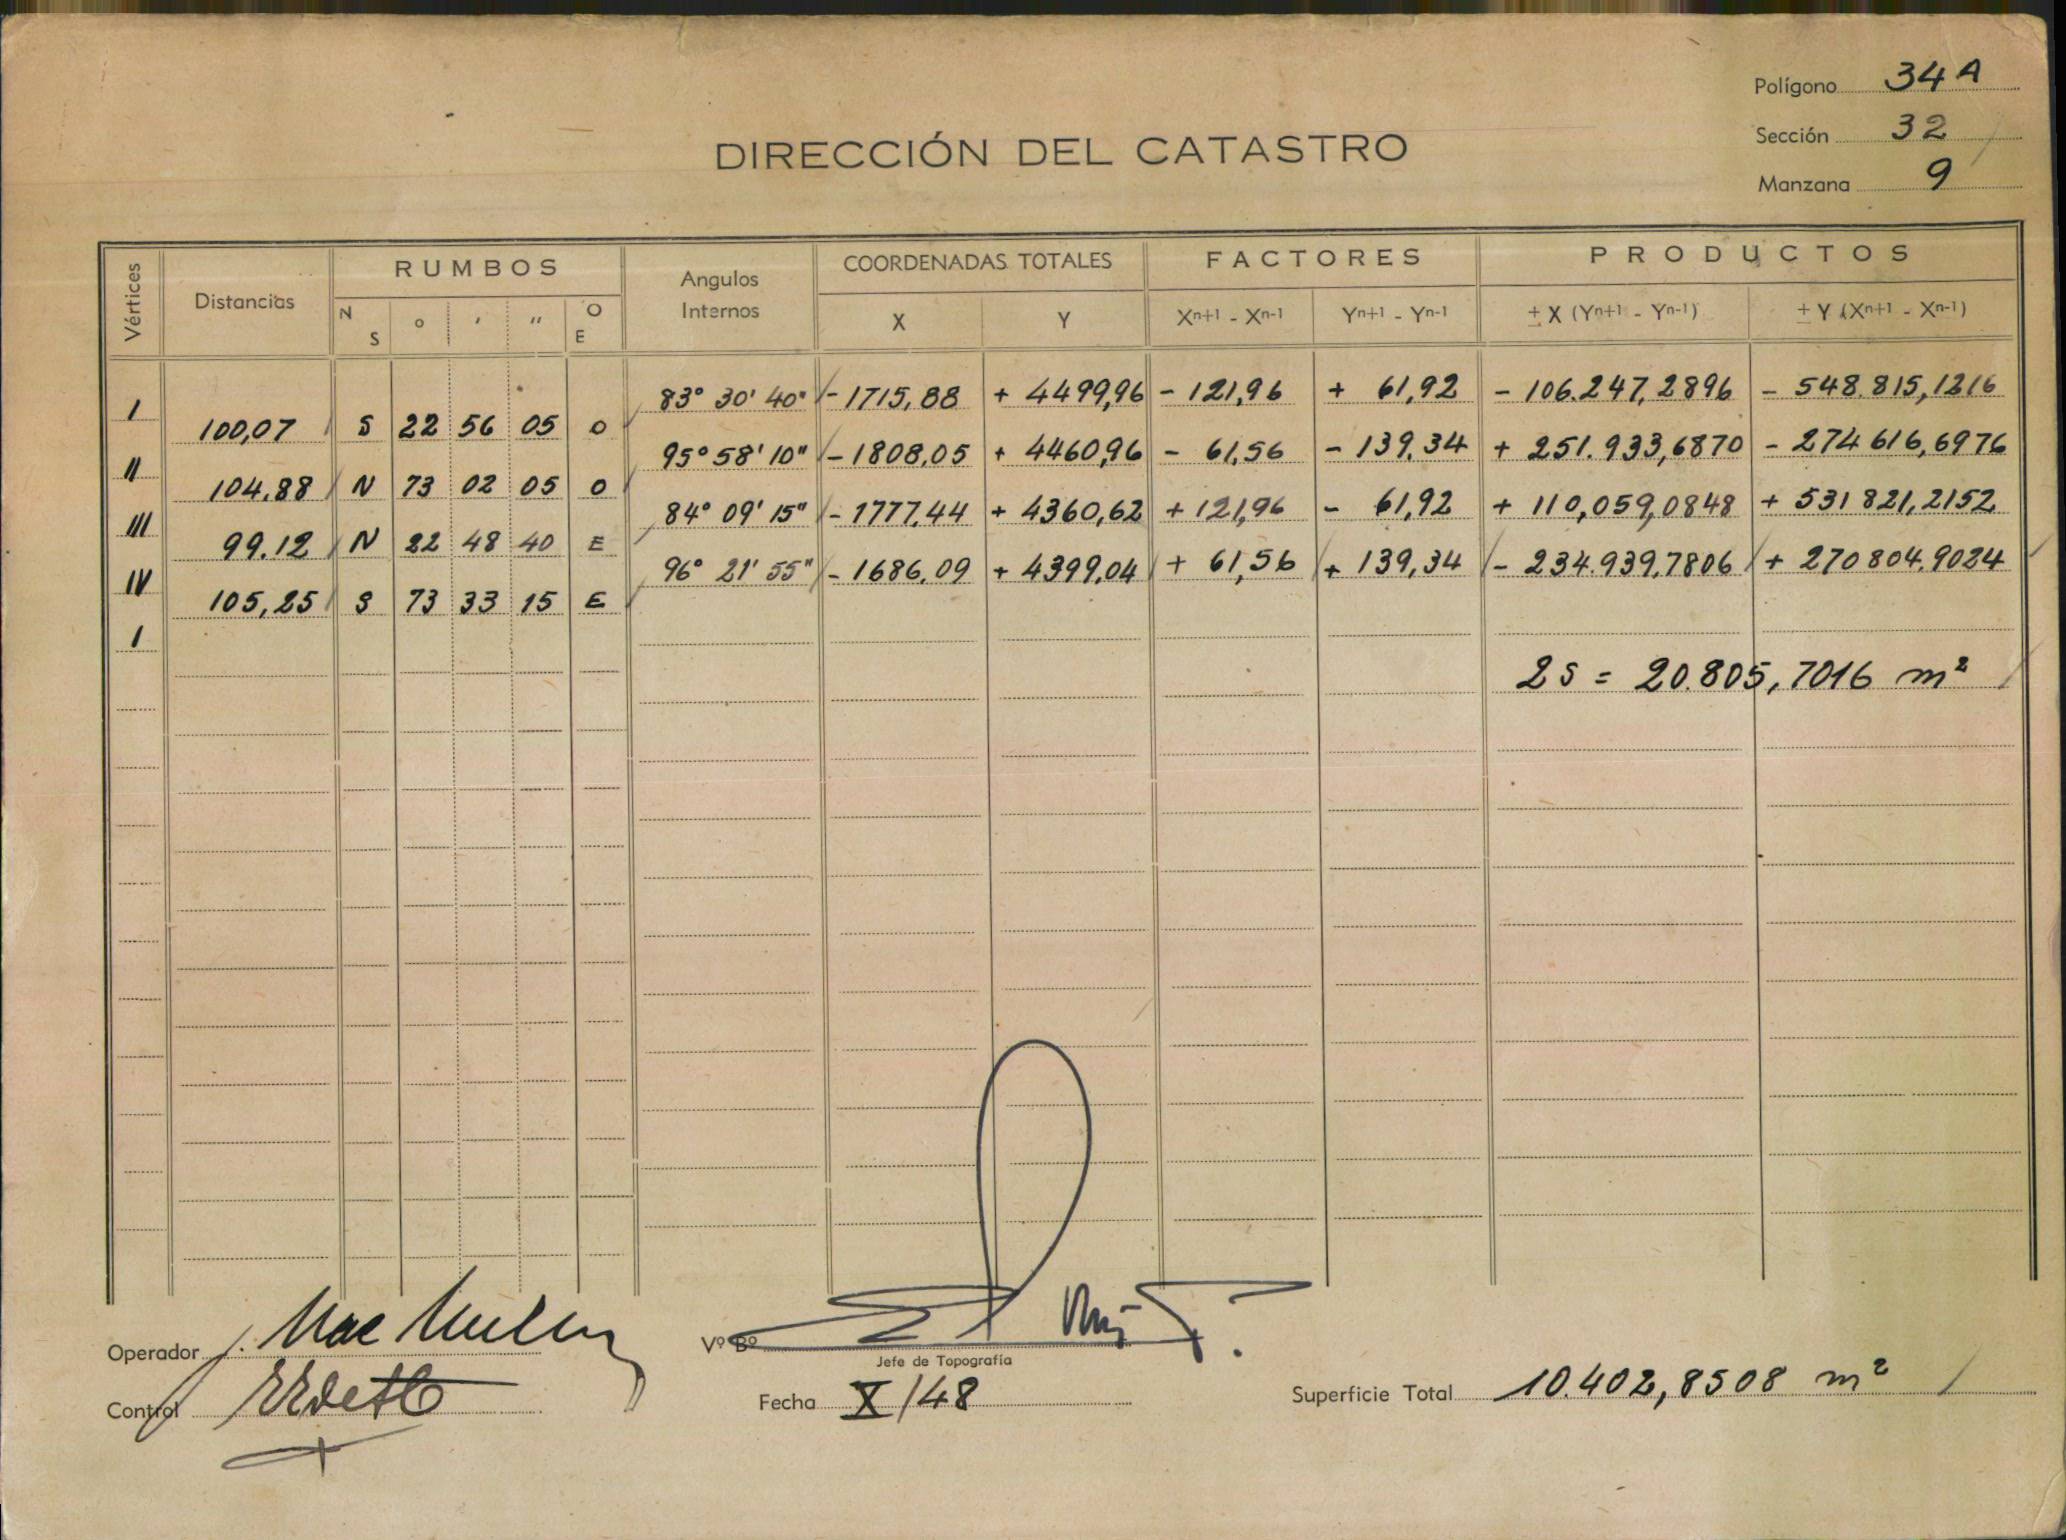 Polígono 34 A
Sección 32
Manzana 9
DIRECCIÓN DEL CATASTRO
Vértices Distancias RUMBOS N S o ' " O E Angulos Internos COORDENADAS TOTALES X Y FACTORES Xn+1 - Xn-1 Yn+1 - Yn-1 PRODUCTOS ± X (Yn+1 - Yn-1) ± Y (Xn+1 - Xn-1)
I 83° 30' 40" - 1715,88 + 4499,96 - 121,96 + 61,92 - 106.247,2896 - 548.815,1216
100,07 S 22 56 05 O
II 95° 58' 10" - 1808,05 + 4460,96 - 61,56 - 139,34 + 251.933,6870 - 274 616,6976
104,88 N 73 02 05 O
III 84° 09' 15" - 1777,44 + 4360,62 + 121,96 - 61,92 + 110,059,0848 + 531 821,2152
99.12 N 22 48 40 E
IV 96° 21' 55" - 1686,09 + 4399,04 + 61,56 + 139,34 - 234.939,7806 + 270 804,9024
105,25 S 73 33 15 E
I
2 S = 20.805,7016 m²
Operador
Vº Bº
Jefe de Topografía
Control
Fecha X/48
Superficie Total 10.402,8508 m²